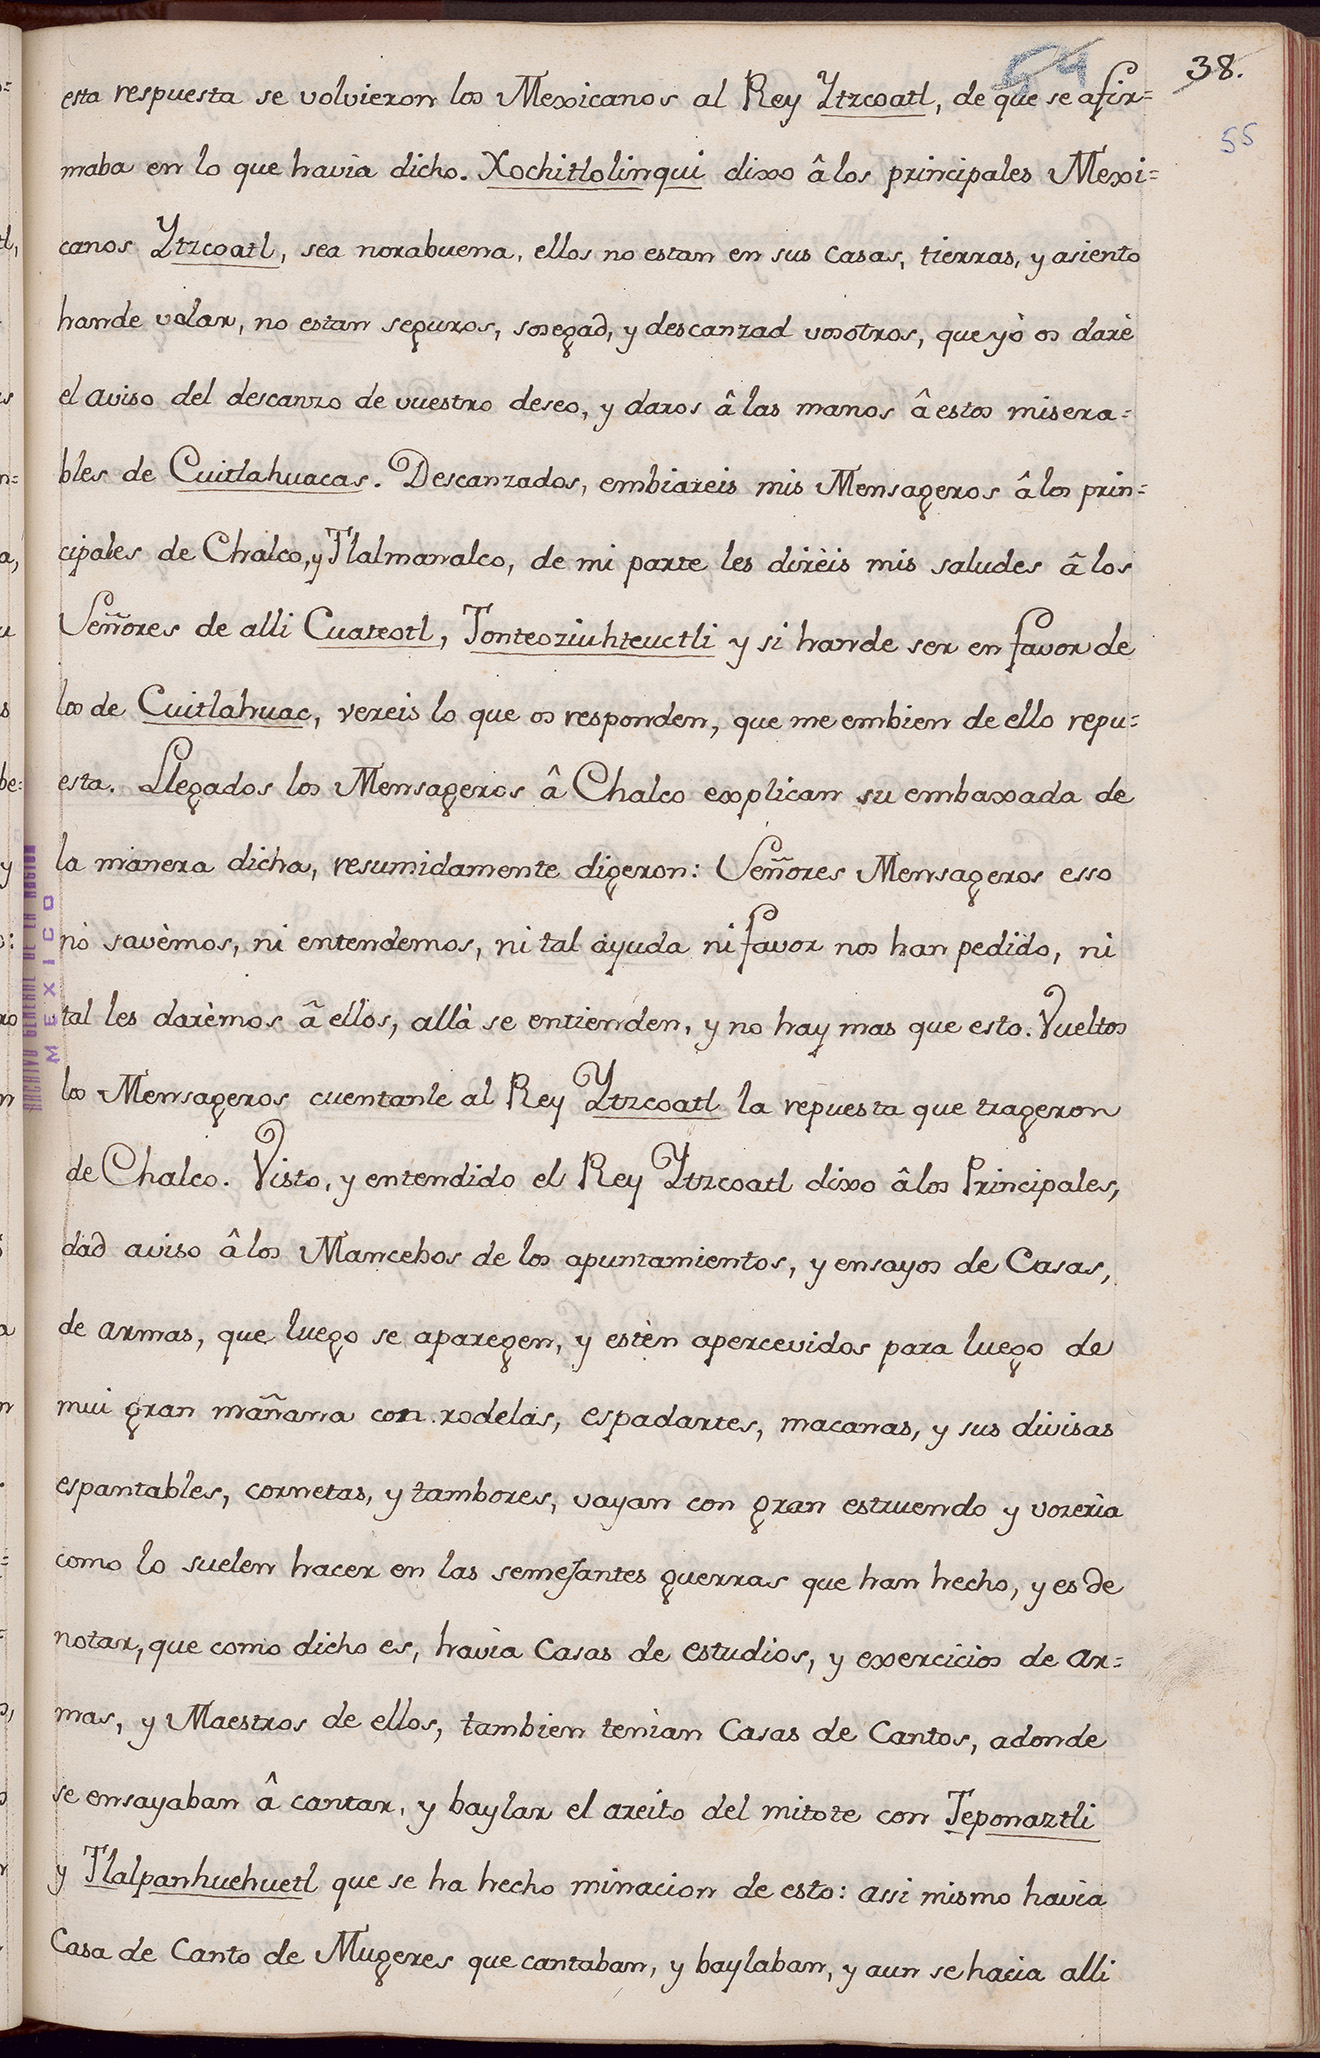 54
38.
55
esta respuesta se volvieron los Mexicanos al Rey Ytzcoatl, de que se afir=
maba en lo que havia dicho. Xochitlolinqui dixo â los principales Mexi=
canos Ytzcoatl, sea norabuena, ellos no estan en sus casas, tierras, y asiento
hande volar, no estan seguros, sosegad, y descanzad vosotros, que yò os darè
el aviso del descanzo de vuestro deseo, y daros â las manos â estos misera=
bles de Cuitlahuacas. Descanzados, embiareis mis Mensageros â los prin=
cipales de Chalco, y Tlalmanalco, de mi parte les dirèis mis saludes â los
Señores de alli Cuateotl, Tonteoziuhteuctli y si hande ser en favor de
los de Cuitlahuac, vereis lo que os responden, que me embien de ello repu=
esta. Llegados los Mensageros â Chalco explican su embaxada de
la manera dicha, resumidamente digeron: Señores Mensageros esso
nò savèmos, ni entendemos, ni tal ayuda ni favor nos han pedido, ni
tal les darèmos â ellos, allà se entienden, y no hay mas que esto. Vueltos
los Mensageros cuentanle al Rey Ytzcoatl la repuesta que trageron
de Chalco. Visto, y entendido el Rey Ytzcoatl dixo â los Principales,
dad aviso â los Mancebos de los apuntamientos, y ensayos de Casas,
de armas, que luego se aparegen, y estèn apercevidos para luego de
mui gran mañana con rodelas, espadartes, macanas, y sus divisas
espantables, cornetas, y tambores, vayan con gran estruendo y vozeria
como lo suelen hacer en las semejantes guerras que han hecho, y es de
notar, que como dicho es, havia Casas de estudios, y exercicios de ar=
mas, y Maestros de ellos, tambien tenian Casas de Cantos, adonde
se ensayaban â cantar, y baylar el areito del mitote con Teponaztli
y Tlalpanhuehuetl que se ha hecho minacion de esto: assi mismo havia
Casa de Canto de Mugeres que cantaban, y baylaban, y aun se hacia alli
ARCHIVO GENERAL DE LA NACION
MEXICO